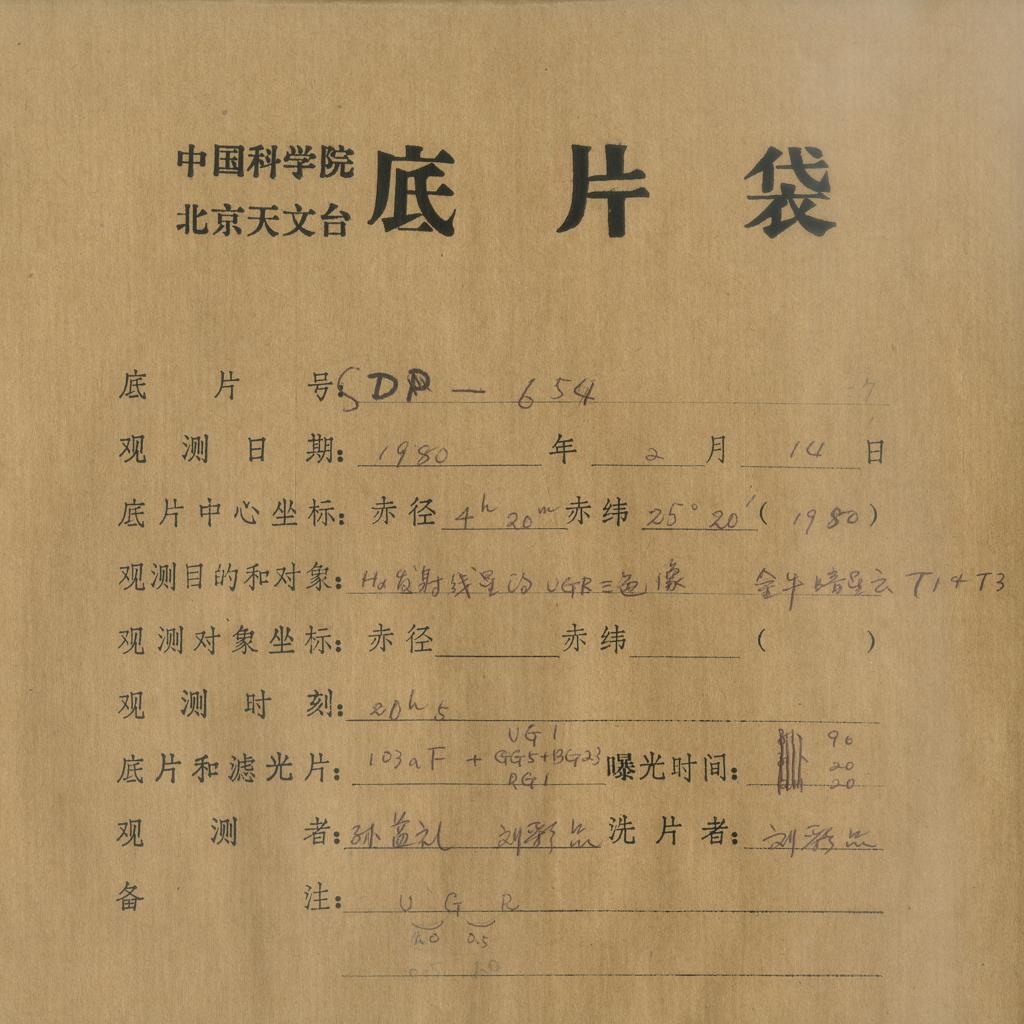 中国科学院
北京天文台 底片袋
底片号: SDP — 654
观测日期: 1980 年 2 月 14 日
底片中心坐标: 赤径 4h 20m 赤纬 25° 20′ ( 1980 )
观测目的和对象: Hα发射线星的 UGR三色像 金牛暗星云 T1+T3
观测对象坐标: 赤径 赤纬 ( )
观测时刻: 20h5
UG1
底片和滤光片: 103aF + GG5+BG23 曝光时间: 90 20 20
RG1
观测者: 孙益礼 刘彩品 洗片者: 刘彩品
备注: U G R
0.5